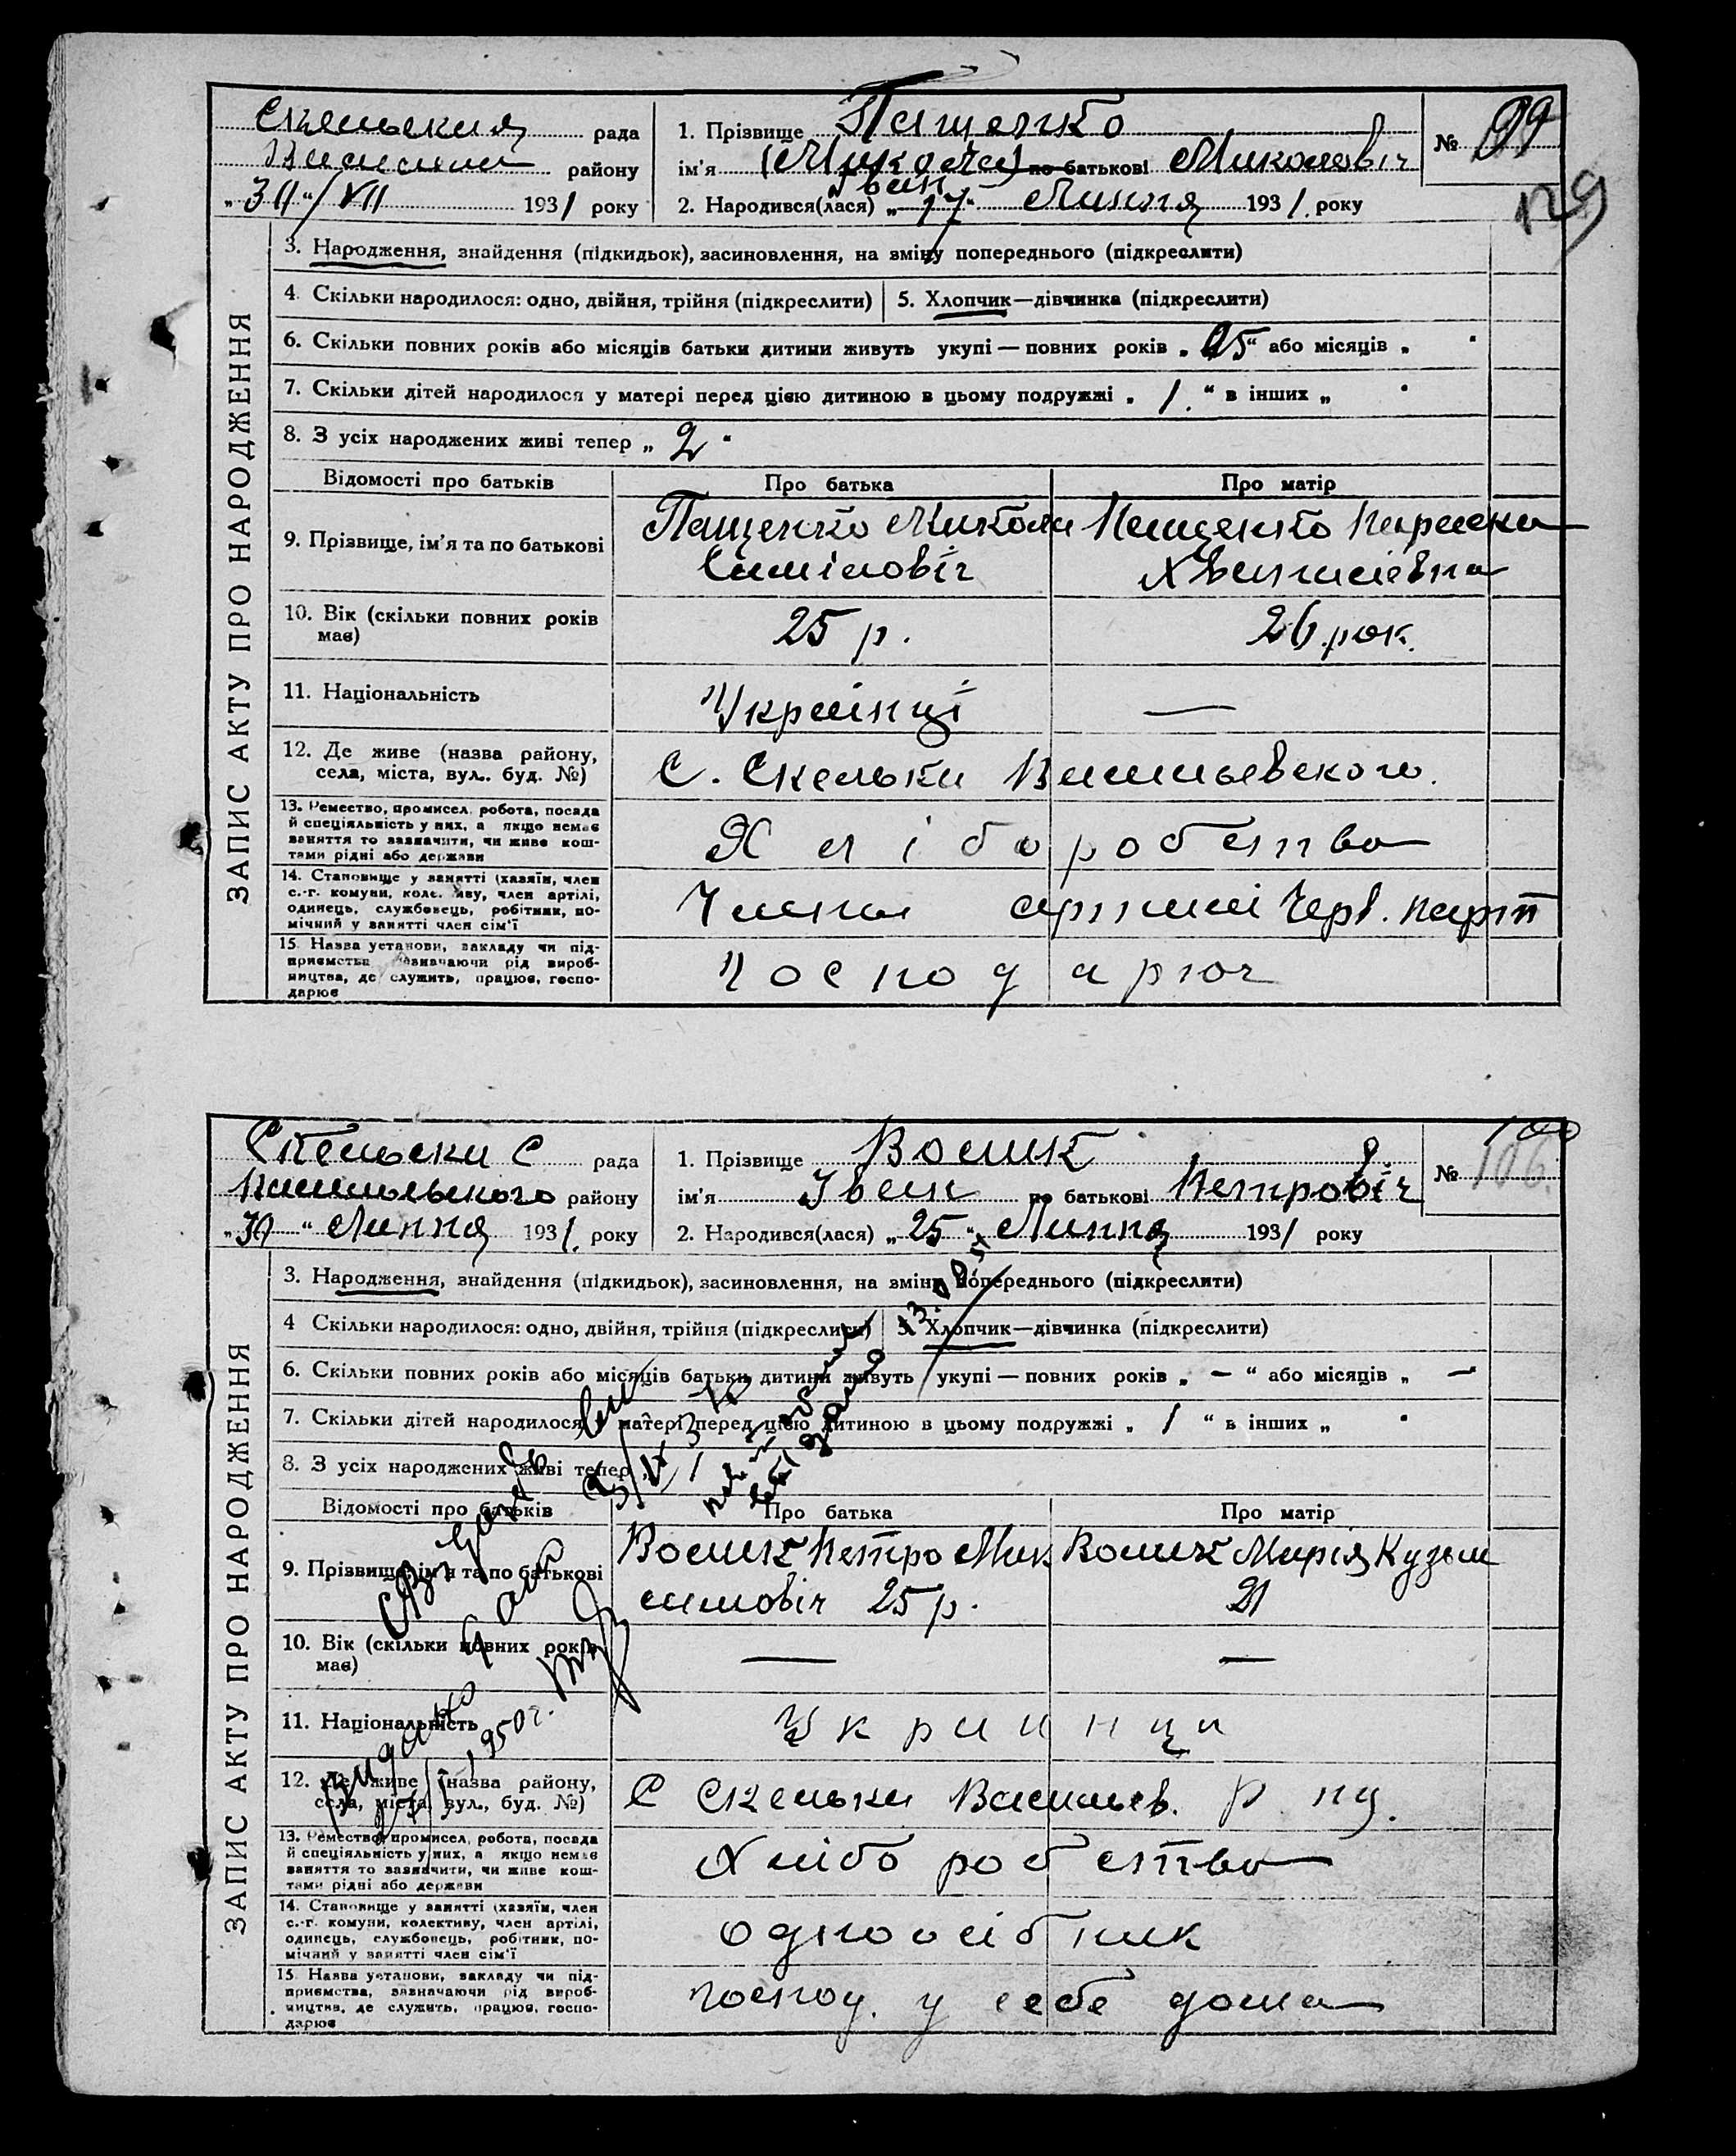 Скельская рада
району
"30" VII 1931 року
1. Прізвище Пащенко
ім'я (Микола) по батькові Миколовіч
Іван
2. Народився(лася) „17" Липня 1931. року
№ 99
129
ЗАПИС АКТУ ПРО НАРОДЖЕННЯ
3. Народження, знайдення (підкидьок), засиновлення, на зміну попереднього (підкреслити)
4. Скільки народилося: одно, двійня, трійня (підкреслити) 5. Хлопчик—дівчинка (підкреслити)
6. Скільки повних років або місяців батьки дитини живуть укупі — повних років „ " або місяців „ "
7. Скільки дітей народилося у матері перед цією дитиною в цьому подружжі „ 1. " в інших „ "
8. З усіх народжених живі тепер „ 2 "
Відомості про батьків Про батька Про матір
9. Прізвище, ім'я та по батькові
Пащенко Микола
Пащенко Параска
10. Вік (скільки повних років має)
25 р.
26 рок.
11. Національність
Українці —
12. Де живе (назва району, села, міста, вул. буд. №)
С. Скельки Васильевского.
13. Ремество, промисел, робота, посада
й спеціяльність у них, а якщо немає
заняття то зазначити, чи живе кош-
тами рідні або держави
Хліборобство
14. Становище у занятті (хазяїн, член
с.-г. комуни, колективу, член артілі,
одинець, службовець, робітник, по-
мічний у занятті член сім'ї
Члени артилі Черв. парт
15. Назва установи, закладу чи під-
приємства зазначаючи рід вироб-
ництва, де служить, працює, госпо-
дарює
Господарюч
Скельски С рада
району
"30" Липня 1931. року
1. Прізвище Волик
ім'я Іван по батькові Петровіч
2. Народився(лася) „25" Липня 1931 року
№ 100
106.
ЗАПИС АКТУ ПРО НАРОДЖЕННЯ
3. Народження, знайдення (підкидьок), засиновлення, на зміну попереднього (підкреслити)
4 Скільки народилося: одно, двійня, трійня (підкреслити) 5. Хлопчик—дівчинка (підкреслити)
6. Скільки повних років або місяців батьки дитини живуть укупі — повних років „ — " або місяців „ —
7. Скільки дітей народилося у матері перед цією дитиною в цьому подружжі „ 1 " в інших „ "
8. З усіх народжених живі тепер „
Відомості про батьків Про батька Про матір
9. Прізвище, ім'я та по батькові
Волик Петро Мак
симовіч 25 р.
Волик Марія Кузьм
21
10. Вік (скільки повних років має)
— —
11. Національність
Украинци
12. Де живе (назва району, села, міста, вул., буд. №)
С Скельки Васильев. р ну.
13. Ремество, промисел, робота, посада
й спеціяльність у них, а якщо немає
заняття то зазначити, чи живе кош-
тами рідні або держави
Хліборобство
14. Становище у занятті (хазяїн, член
с.-г. комуни, колективу, член артілі,
одинець, службовець, робітник, по-
мічний у занятті член сім'ї
одноосібник
15. Назва установи, закладу чи під-
приємства, зазначаючи рід вироб-
ництва, де служить, працює, госпо-
дарює
господ. у себе дома
Видано
1950 г.